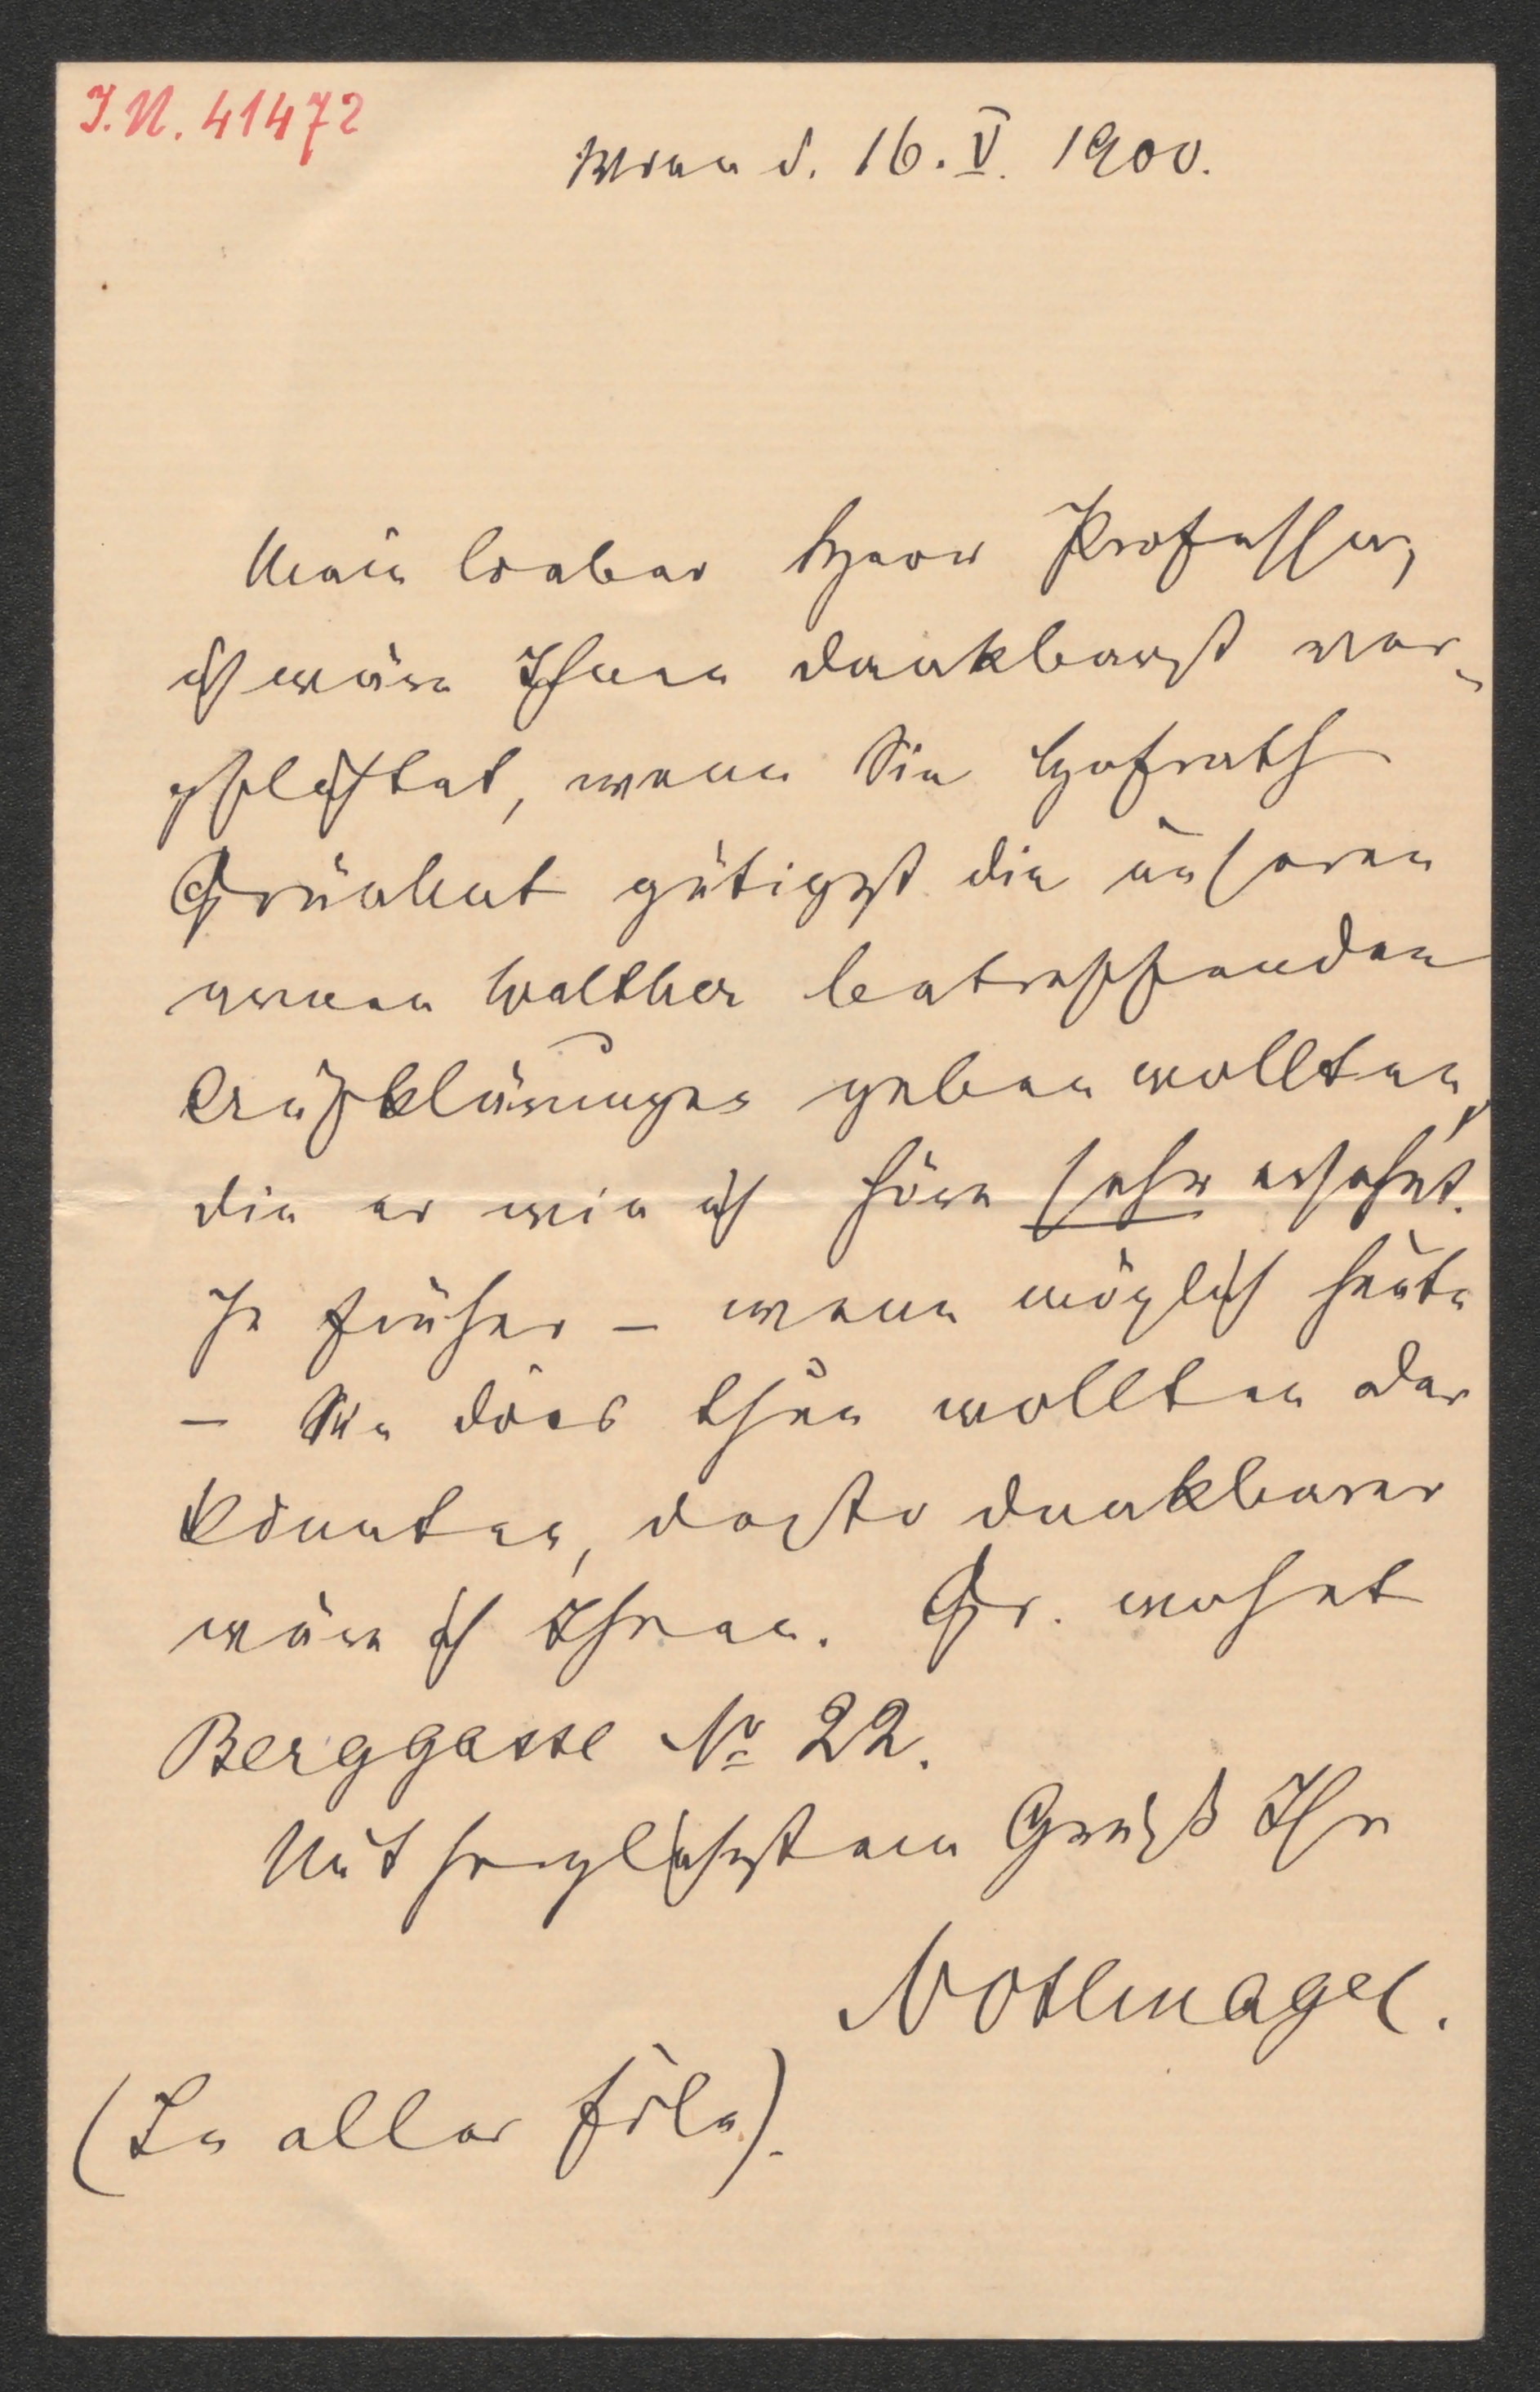 I.N. 41472
Wien d. 16. V. 1900.
Mein lieber Herr Professor,
ich wäre Ihnen dankbarst ver-
pflichtet, wenn Sie Hofrath
Grünhut gütigst die unseren
armen Walther betreffenden
Aufklärungen geben wollten,
die er wie ich höre sehr ersehnt.
Je früher – wenn möglich heute
– Sie dies thun wollten oder
könnten, desto dankbarer
wäre ich Ihnen. Gr. wohnt
Berggasse No 22.
Mit herzlichstem Gruß Ihr
Nothnagel.
(In aller Eile).